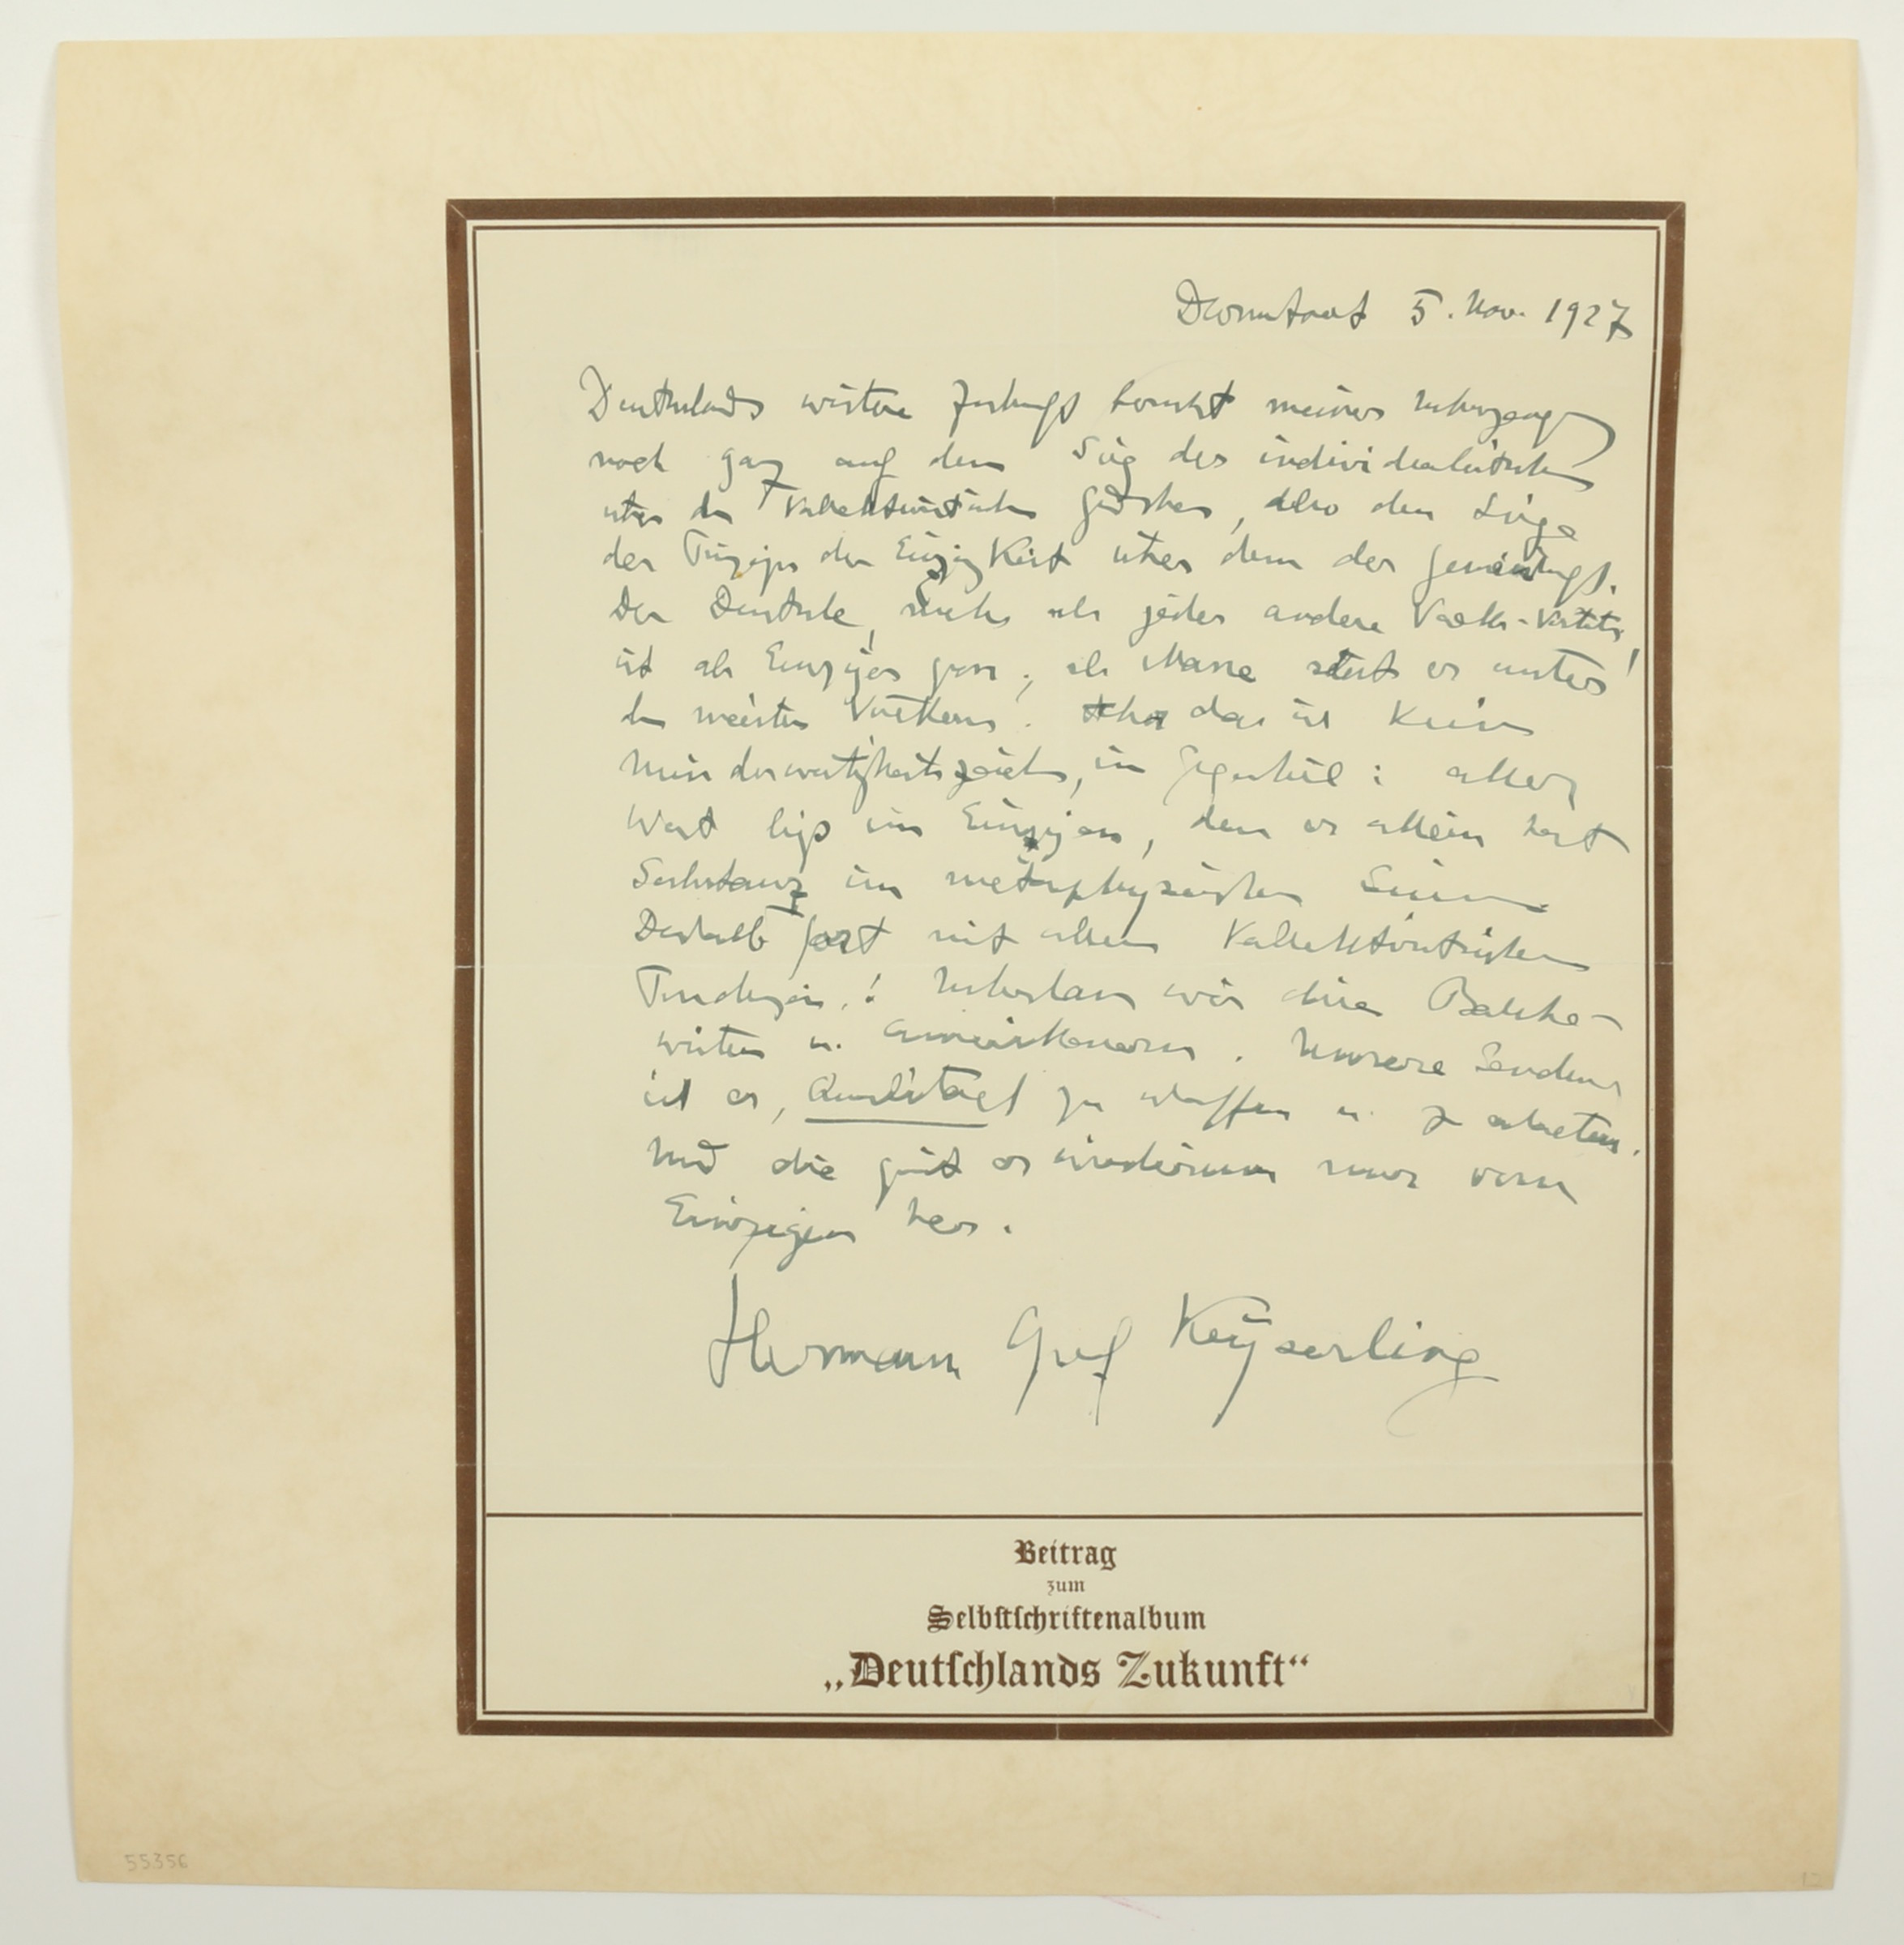 Darmstadt 5. Nov. 1927
Deutschlands weitere Zukunft beruht meiner Ueberzeugung
nach ganz auf dem Sieg des individualistischen
über den kollektivistischen Gedanken, also dem Siege
des Prinzips der Einzigkeit über dem der Gemeinschaft.
Der Deutsche, mehr als jeder andere Volks-Vertreter,
ist als Einziger gross; als Masse steht er unter
den meisten Völkern. Aber das ist kein
Minderwertigkeitszeichen, im Gegenteil: aller
Wert liegt im Einzigen, denn er allein hat
Substanz im metaphysischen Sinn.
Deshalb fort mit allen kollektivistischen
Tendenzen! Ueberlassen wir diese Bolsche-
wisten u. Amerikanern. Unsere Sendung
ist es, Qualitaet zu schaffen u. zu
Und die gibt es wiederum nur vom
Einzigen her.
Hermann Graf Keyserling
Beitrag
zum
Selbstschriftenalbum
„Deutschlands Zukunft“
55356
12